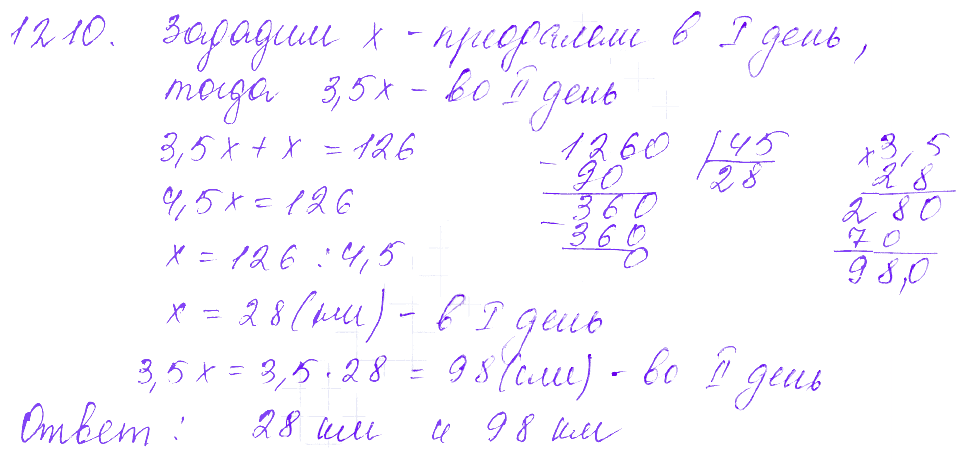 1210. Зададим x - проехали в I день,
тогда 3,5x - во II день
3,5x + x = 126
4,5x = 126
x = 126 : 4,5
x = 28 (км) - в I день
3,5x = 3,5 · 28 = 98 (км) - во II день
Ответ: 28 км и 98 км
- 1260 | 45
90 28
- 360
360
0
x 3,5
28
280
70
98,0